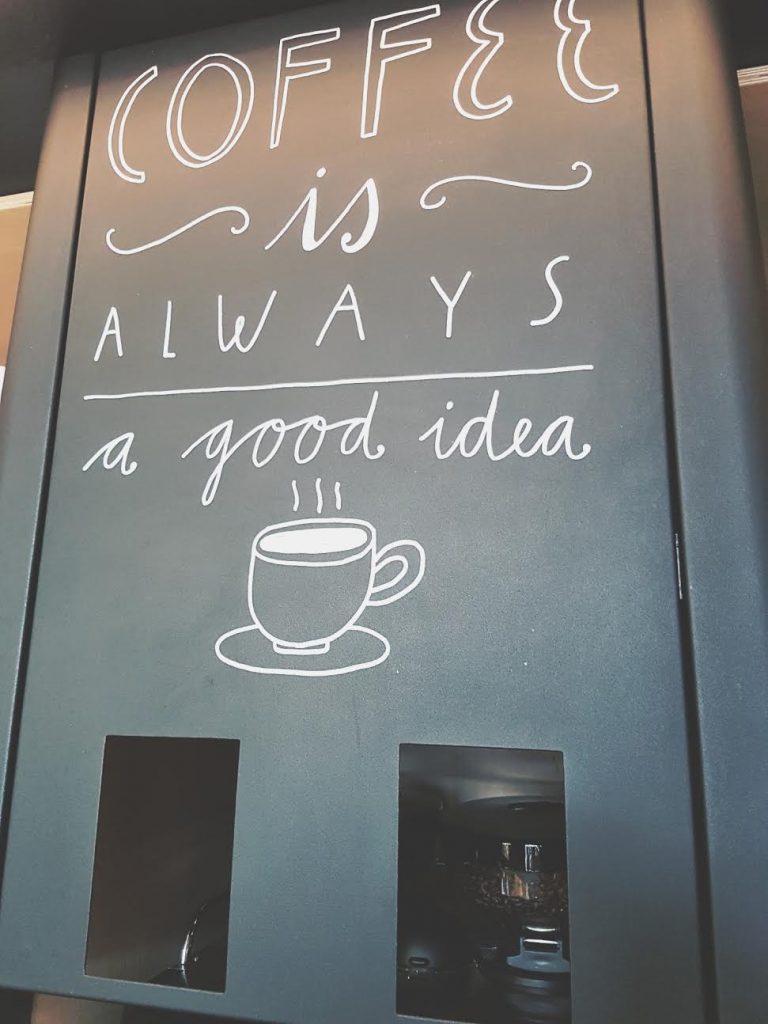 COFFEE
is
ALWAYS
a good idea